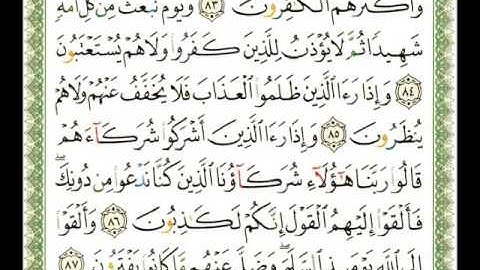 وَأَكْثَرُهُمُ ٱلْكَٰفِرُونَ ٨٣ وَيَوْمَ نَبْعَثُ مِن كُلِّ أُمَّةٍ
شَهِيدًا ثُمَّ لَا يُؤْذَنُ لِلَّذِينَ كَفَرُوا۟ وَلَا هُمْ يُسْتَعْتَبُونَ
٨٤ وَإِذَا رَءَا ٱلَّذِينَ ظَلَمُوا۟ ٱلْعَذَابَ فَلَا يُخَفَّفُ عَنْهُمْ وَلَا هُمْ
يُنظَرُونَ ٨٥ وَإِذَا رَءَا ٱلَّذِينَ أَشْرَكُوا۟ شُرَكَآءَهُمْ
قَالُوا۟ رَبَّنَا هَٰٓؤُلَآءِ شُرَكَآؤُنَا ٱلَّذِينَ كُنَّا نَدْعُوا۟ مِن دُونِكَ ۖ
فَأَلْقَوْا۟ إِلَيْهِمُ ٱلْقَوْلَ إِنَّكُمْ لَكَٰذِبُونَ ٨٦ وَأَلْقَوْا۟
إِلَى ٱللَّهِ يَوْمَئِذٍ ٱلسَّلَمَ ۖ وَضَلَّ عَنْهُم مَّا كَانُوا۟ يَفْتَرُونَ ٨٧